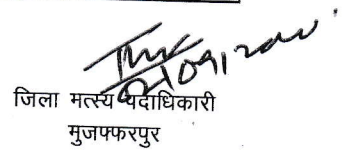 जिला मत्स्य पदाधिकारी
मुजफ्फरपुर